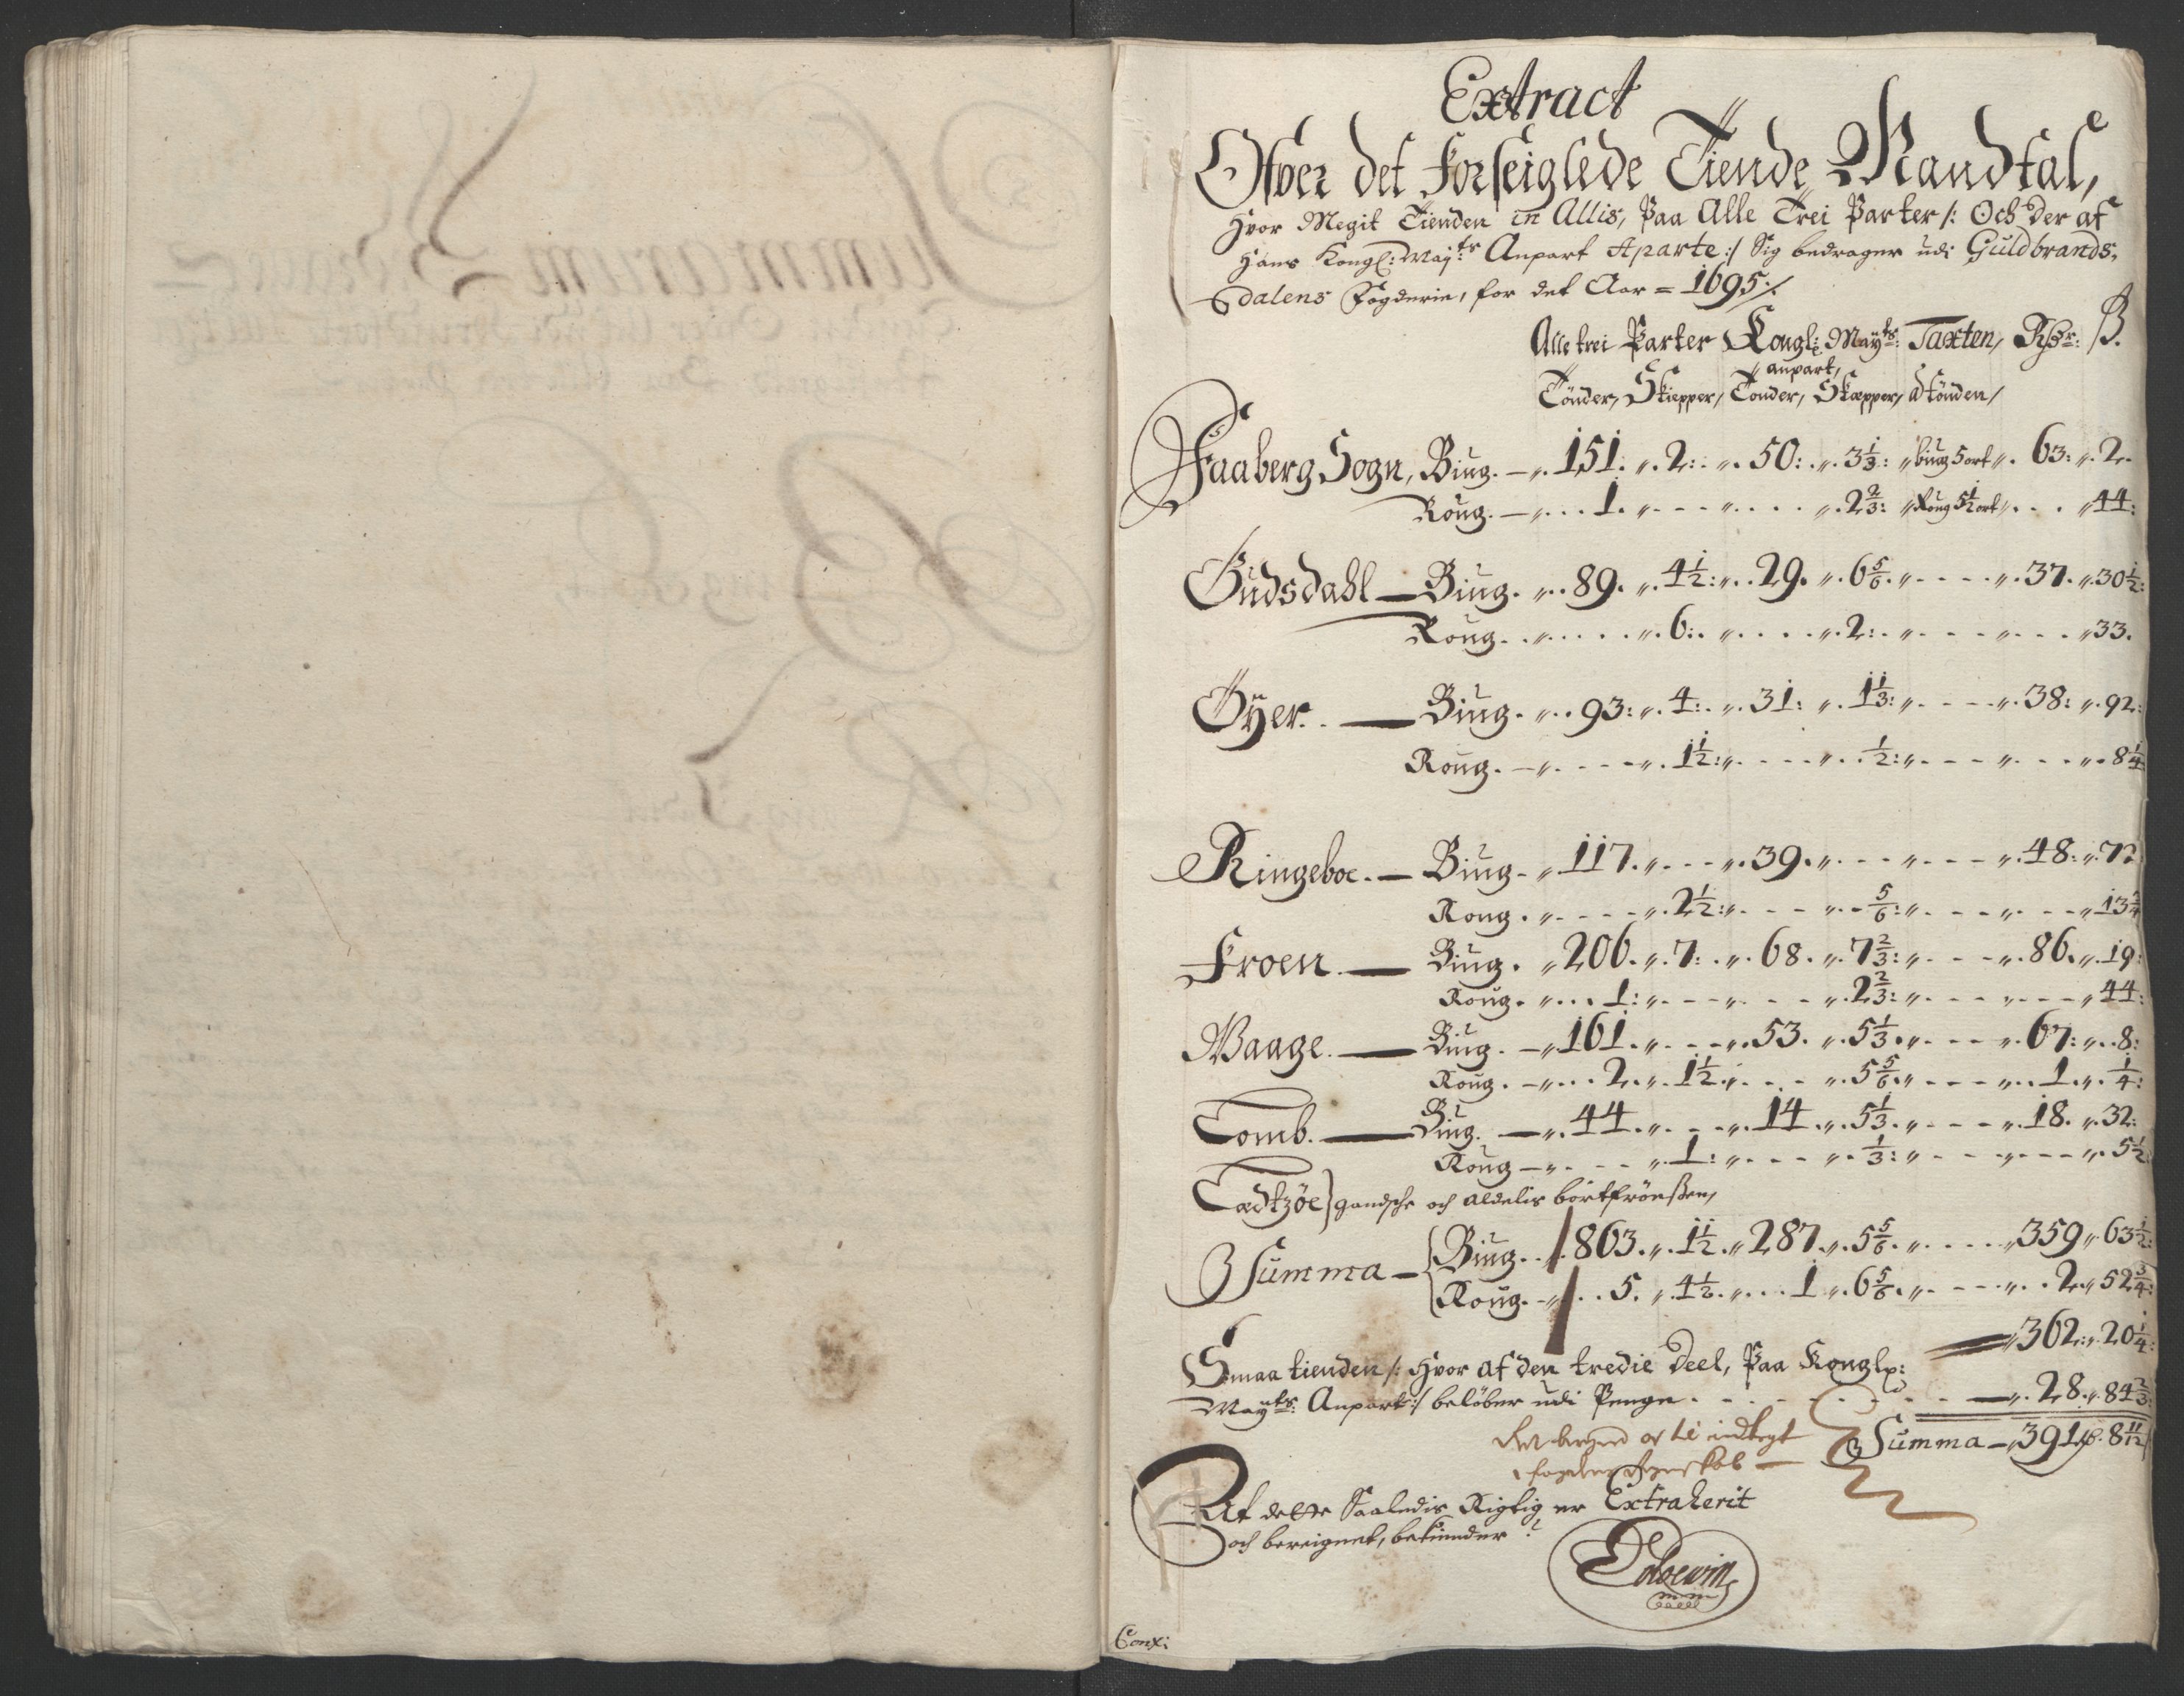 Extract
Ofver det Forseiglede Tiende Mandtal,
Hvor Megit Tienden in Allis, Paa Alle Trei Parter /: Och der af
Hans Kongl: Mayts Anpart Aparte :/ Sig bedrager udi Guldbrands,
dalens Fogderie, for det Aar = 1695 /.
Alle trei Parter Kongl: Mayts: Taxten, Rdr: ß.
anpart,
Tönder, Skiepper, Tönder, Skæpper, a tönden,
Faaberg Sogn, Biug. 151. 2: 50: 3 1/3: biug 5 ort 63: 2.
Roug. 1. 2 2/3: Roug 5 1/2 ort 44:
Gudsdahl Biug. 89. 4 1/2: 29. 6 5/6. 37. 30 1/2:
Roug. 6: 2: 33.
Öyer. Biug. 93: 4: 31: 1 1/3: 38: 92:
Roug. 1 1/2: 1/2: 8 1/4
Ringeboe. Biug. 117. 39. 48: 72
Roug. 2 1/2: 5/6: 13 3/4
Froen. Biug. 206. 7: 68. 7 2/3: 86. 19:
Roug. 1: 2 2/3: 44:
Waage. Biug. 161. 53. 5 1/3. 67: 8:
Roug. 2. 1 1/2. 5 5/6. 1. 1/4:
Lomb. Biug. 44. 14. 5 1/3. 18. 32:
Roug 1: 1/3: 5 1/2
gandsche och aldelis bortfröessen,
Summa Biug. 863. 1 1/2. 287. 5 5/6. 359 63 1/2:
Roug. 5. 4 1/2. 1 6 5/6. 2. 52 3/4:
362: 20 1/4:
Smaa tienden /: Hvor af den tredie Deel, Paa Konglx:
Mayts: Anpart :/ belöber udi Penge 28. 84 2/3:
Summa 391 8 11/12
At dette Saaledis Rigtig er Extraherit
och bereignet, bekiender